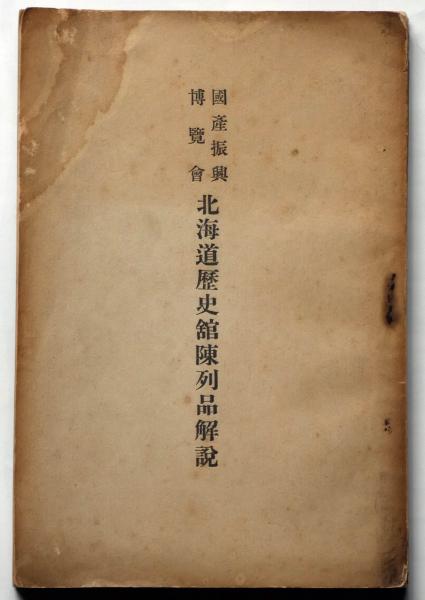 國產振興
博覽會
北海道歷史舘陳列品解說